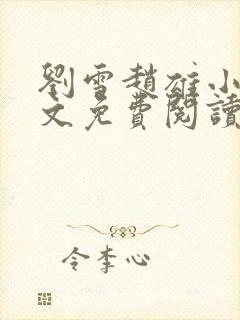 劉雪趙雄小
文免費閱讀
令李心